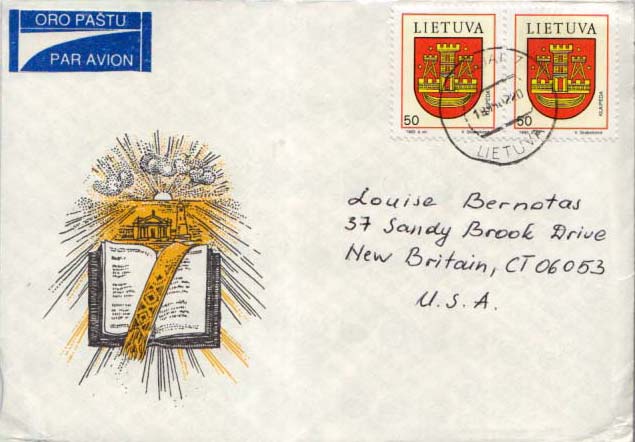 ORO PAŠTU
PAR AVION
LIETUVA
50
KLAIPĖDA
LIETUVA
50
KLAIPĖDA
LIETUVA
Louise Bernotas
37 Sandy Brook Drive
New Britain, CT 06053
U.S.A.